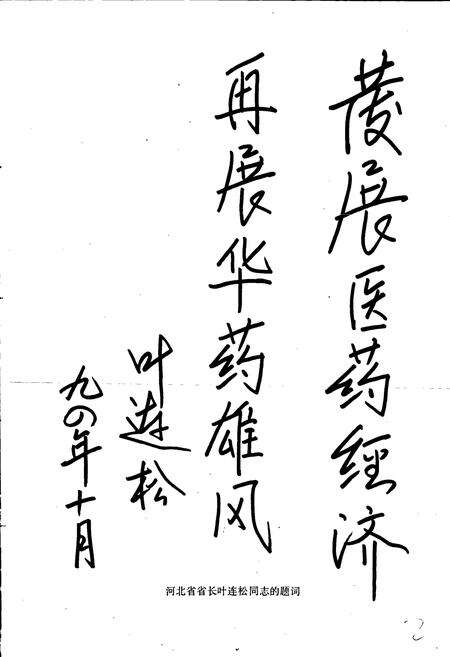 发展医药经济
再展华药雄风
叶连松
九四年十月
河北省省长叶连松同志的题词